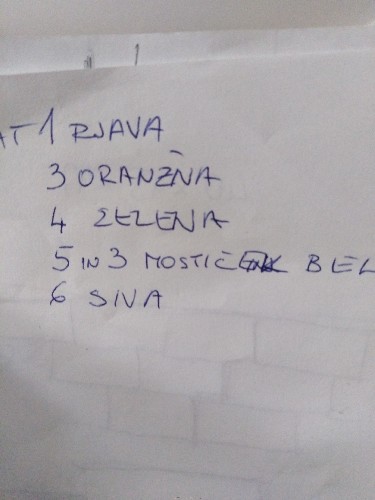 1
AT 1 RJAVA
3 ORANŽNA
4 ZELENA
5 IN 3 MOSTIČEK BEL
6 SIVA